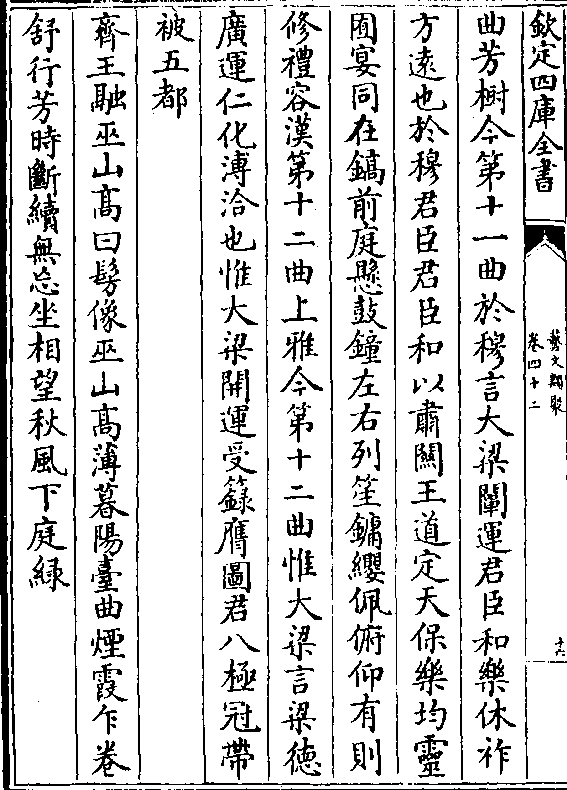 欽定四庫全書
藝文類聚
卷四十二
十六
曲芳樹今第十一曲於穆言大梁闡運君臣和樂休祚
方遠也於穆君臣君臣和以肅關王道定天保樂均靈
囿宴同在鎬前庭懸鼓鐘左右列笙鏞纓佩俯仰有則
修禮容漢第十二曲上雅今第十二曲惟大梁言梁德
廣運仁化溥洽也惟大梁開運受籙膺圖君八極冠帶
被五都
齊王融巫山髙曰髣像巫山髙薄暮陽臺曲煙霞乍卷
舒行芳時斷續無忘坐相望秋風下庭緑